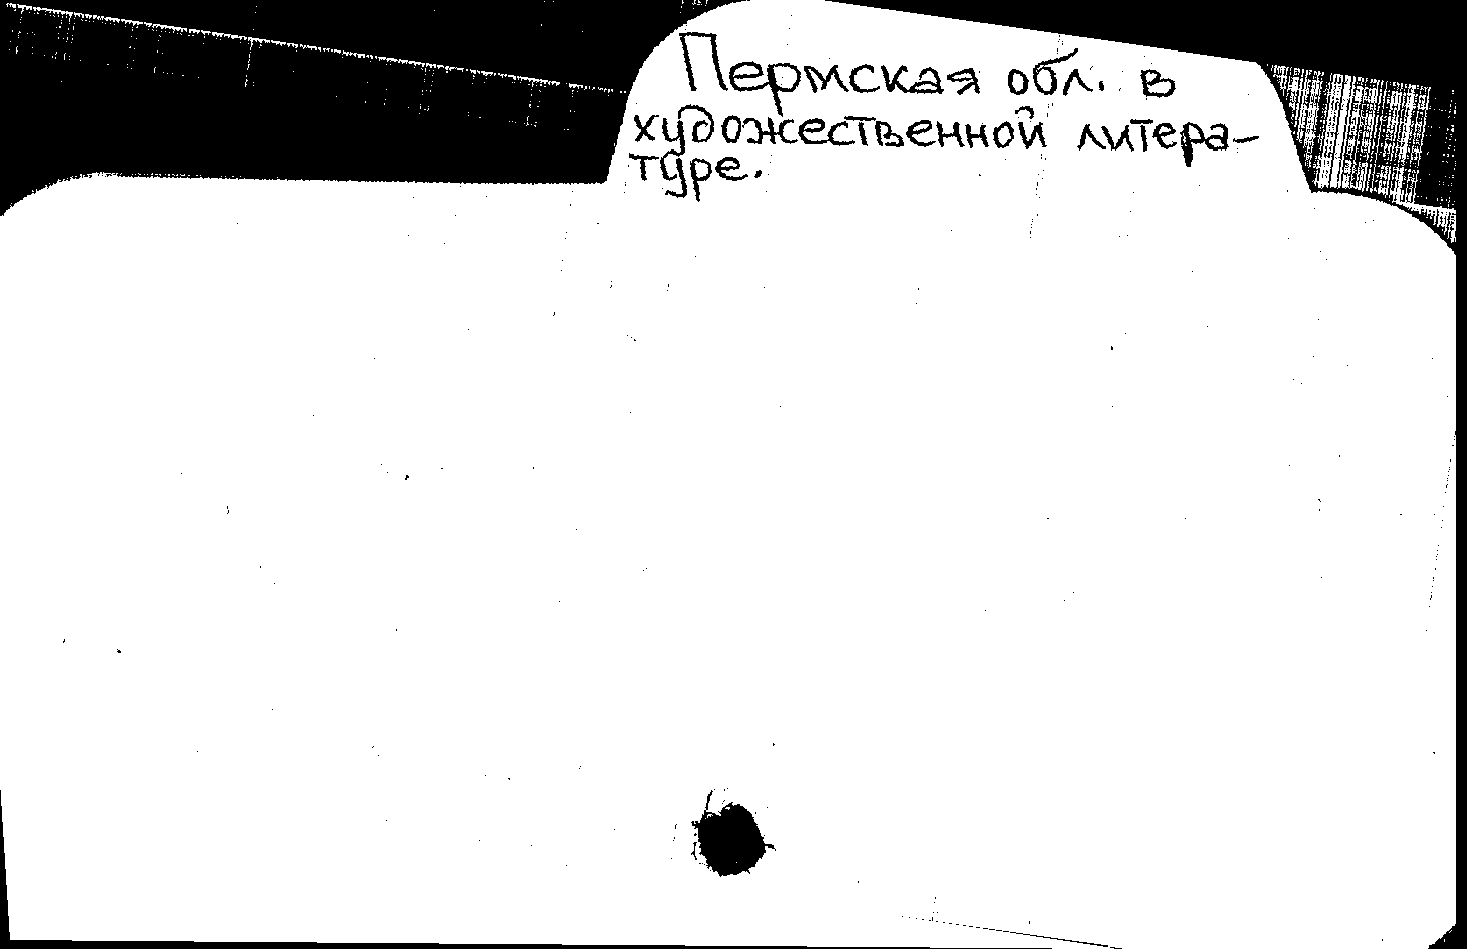 Пермская обл. в
художественной литера-
туре.